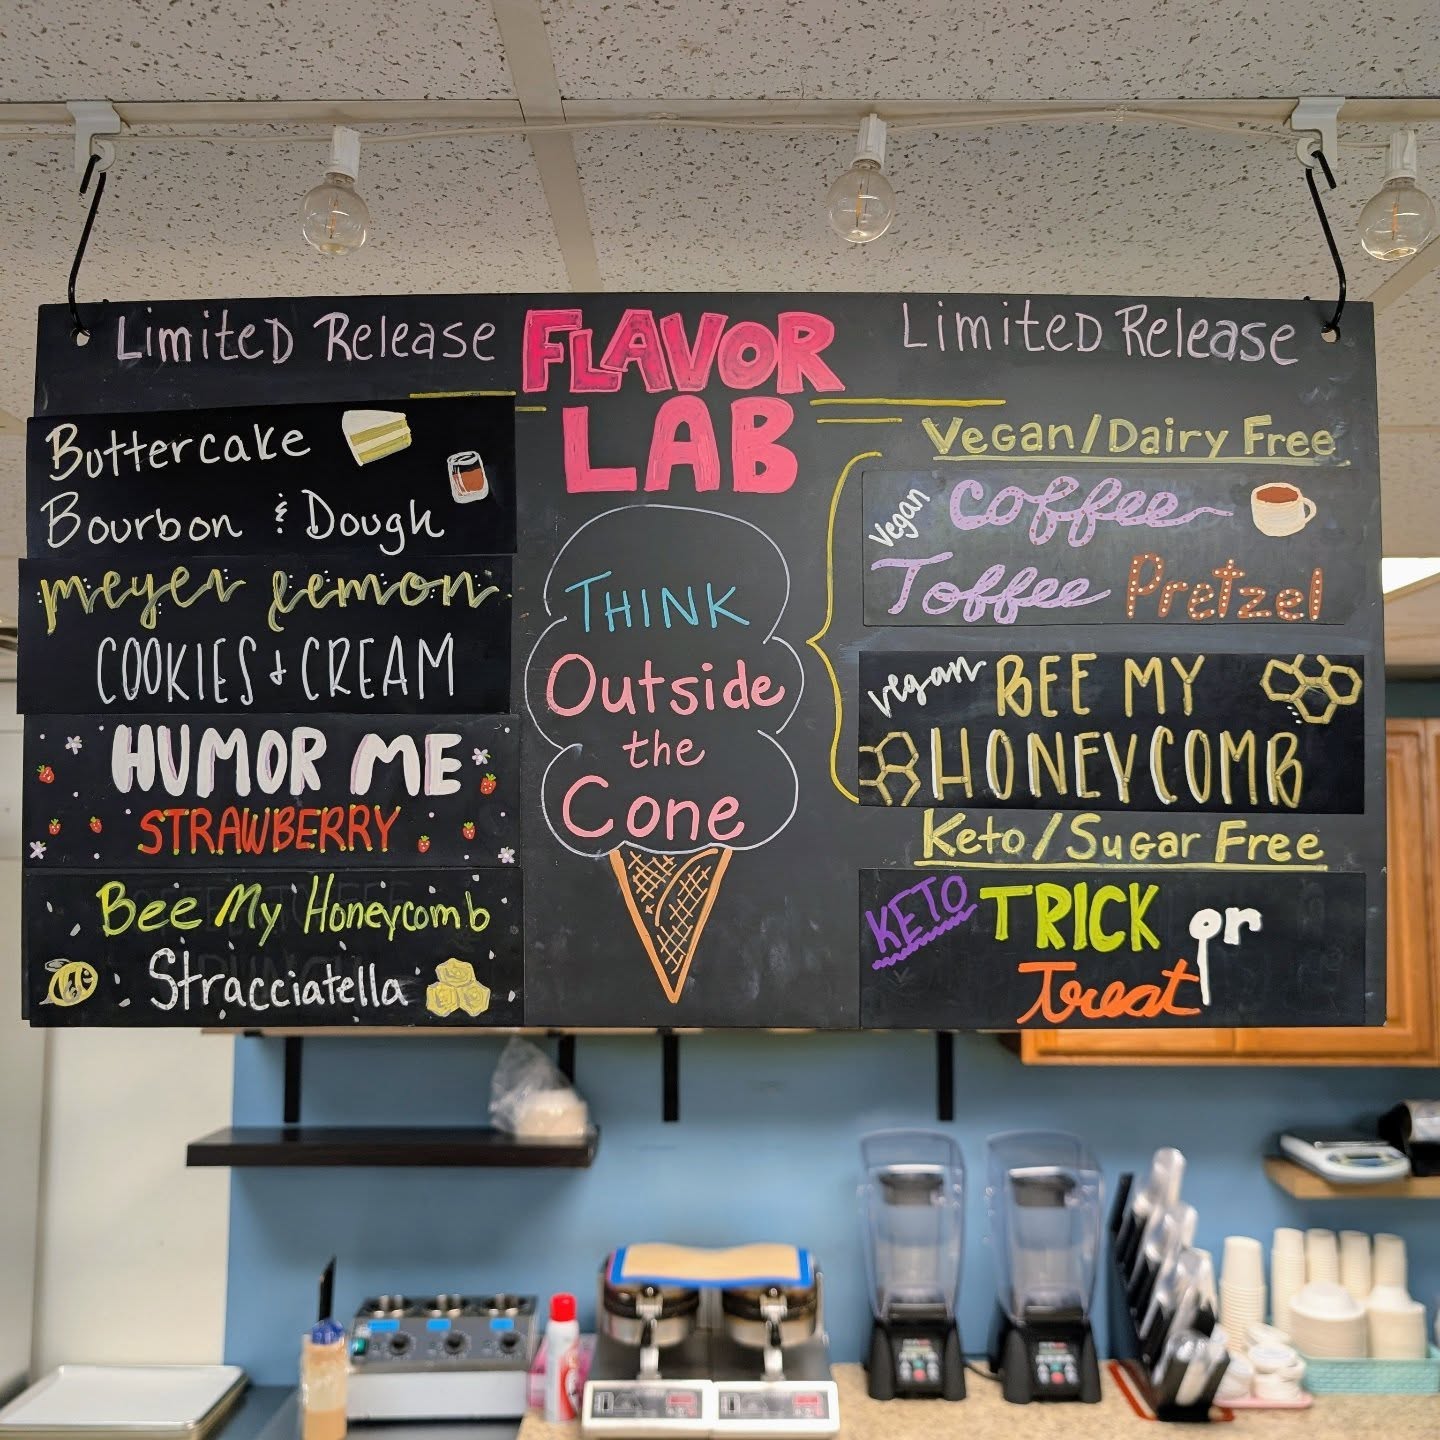 Limited Release
Buttercake
Bourbon & Dough
meyer lemon
COOKIES & CREAM
HUMOR ME
STRAWBERRY
Bee My Honeycomb
Stracciatella
FLAVOR
LAB
THINK
Outside
the
Cone
Limited Release
Vegan/Dairy Free
Vegan Coffee
Toffee Pretzel
vegan BEE MY
HONEYCOMB
Keto/Sugar Free
KETO TRICK or
Treat